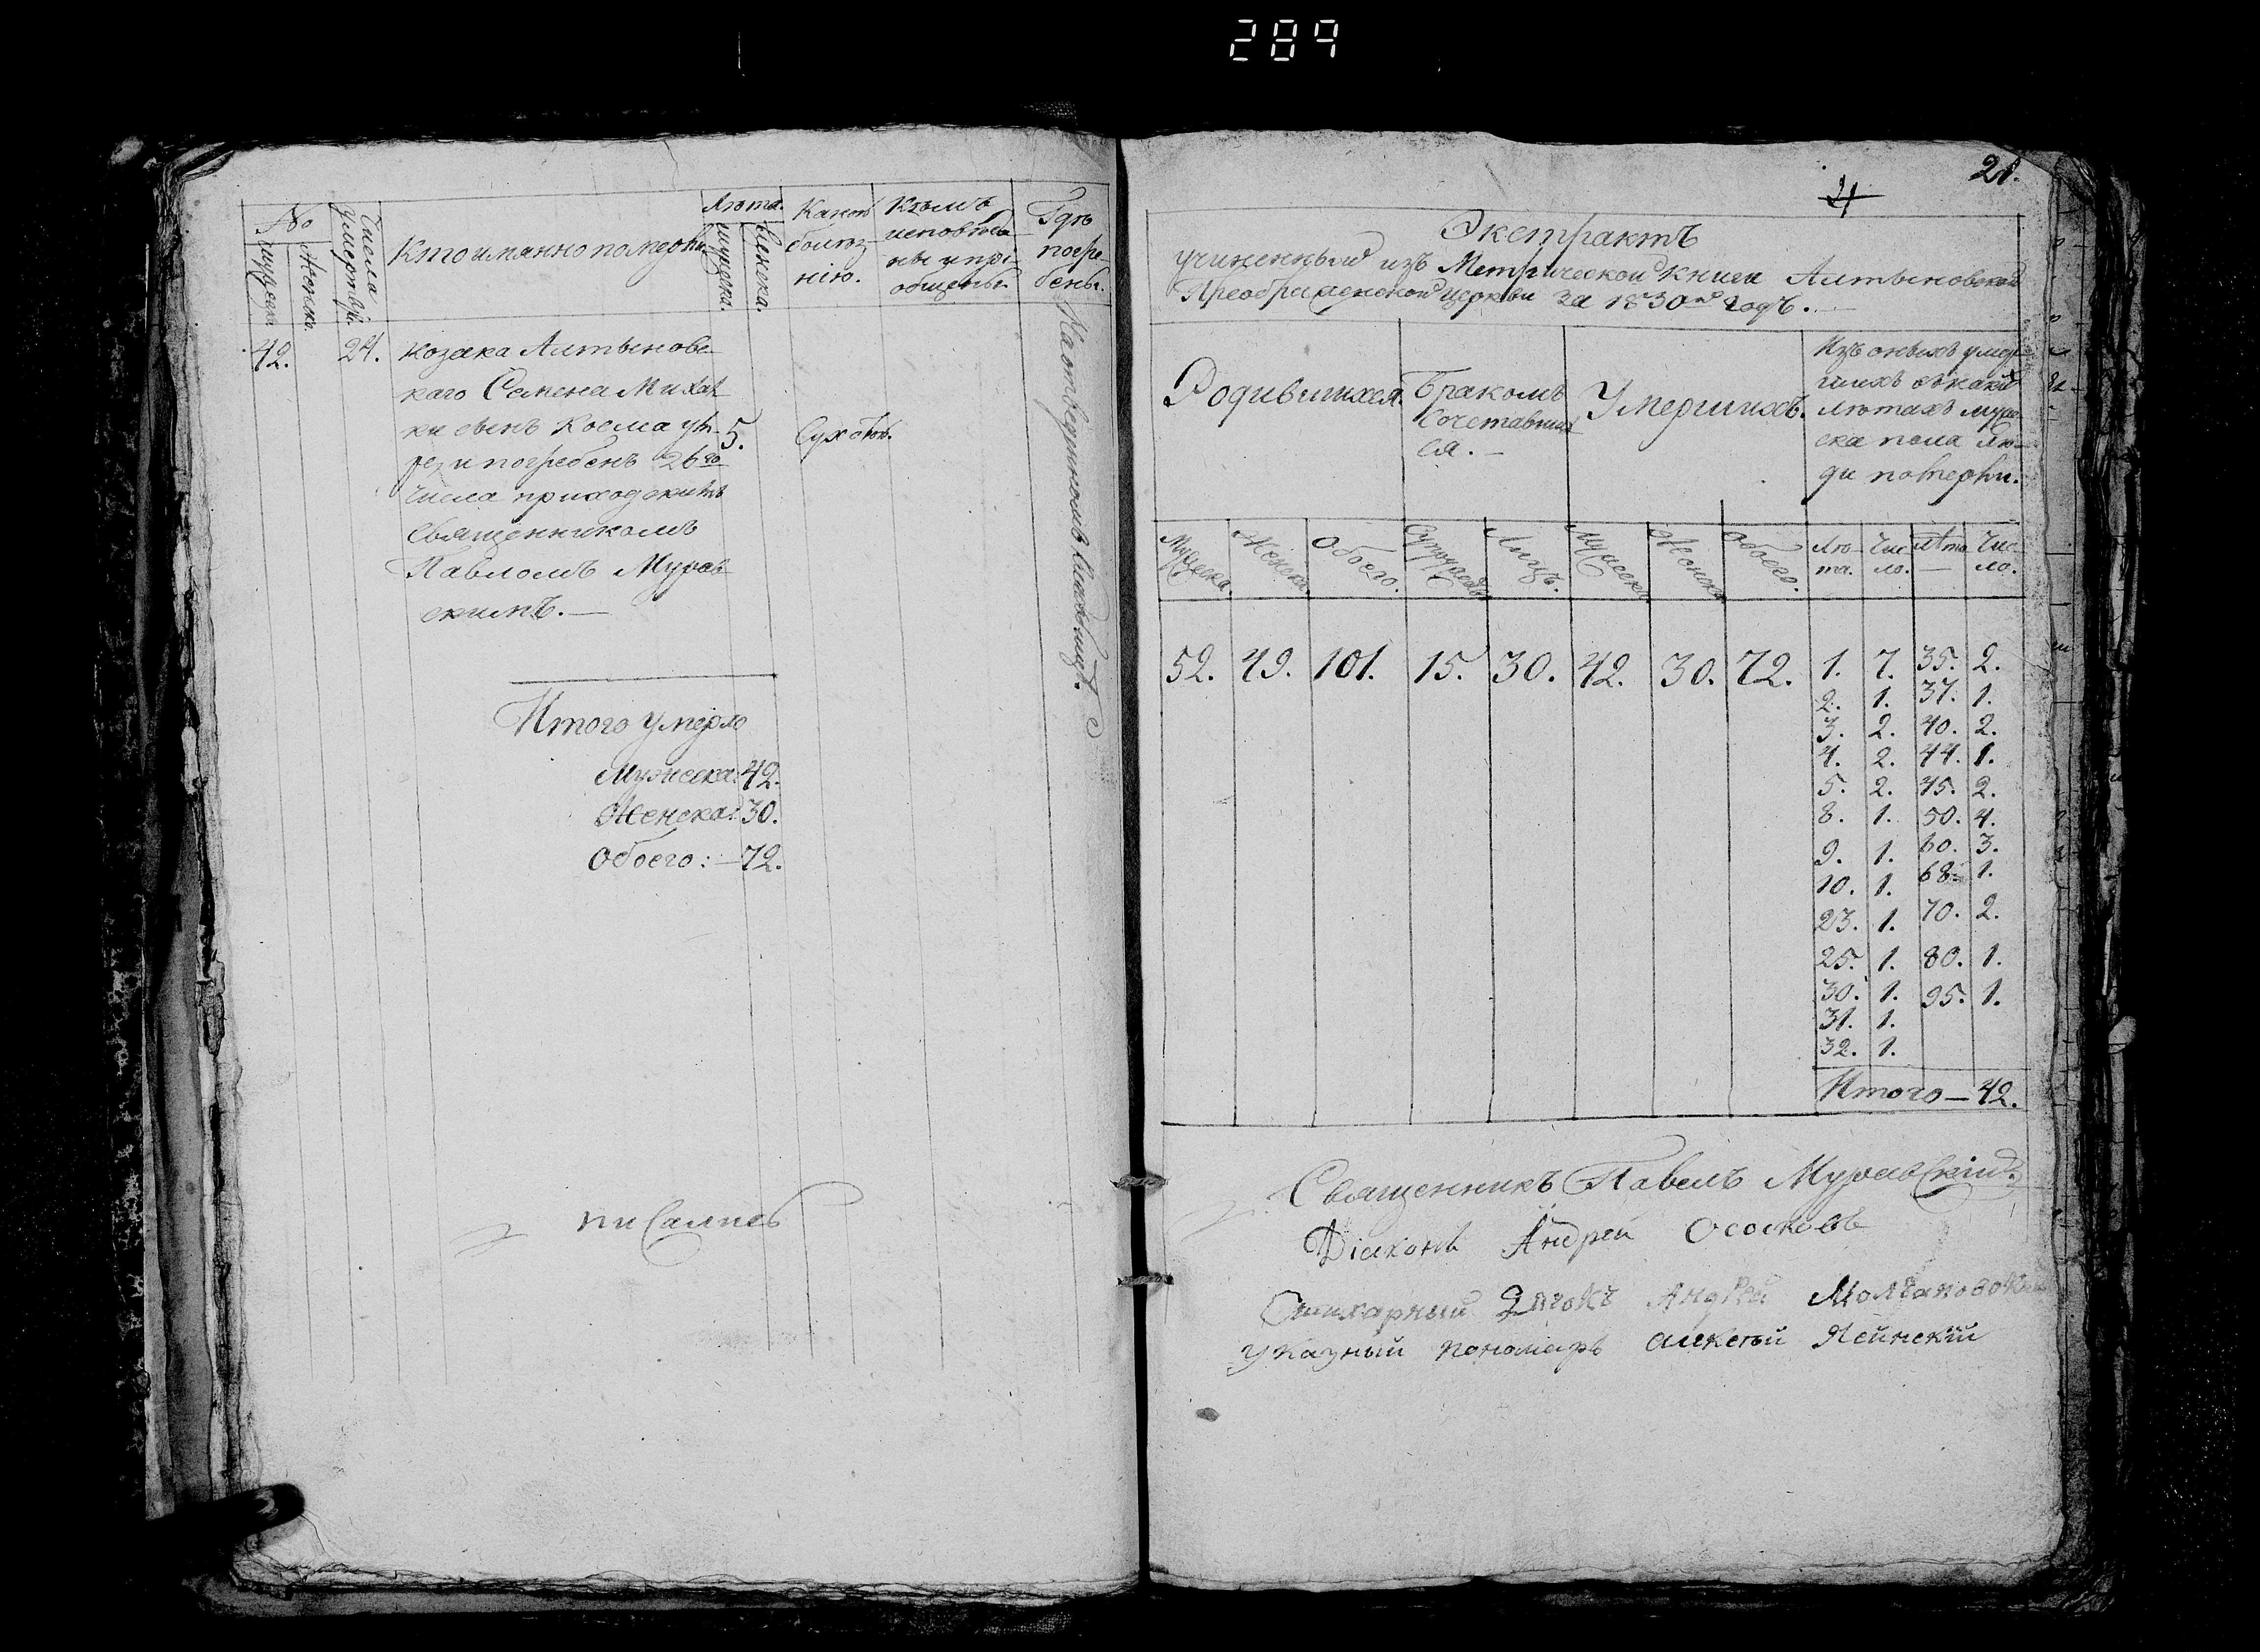 289
№
мужеск.
женск.
Числа умертвій.
Кто имянно померли
Лѣта.
мужеска.
женска.
Какою
болѣз-
нію.
Кѣмъ
исповѣда-
ны и прі-
общены.
Гдѣ
погре-
бены.
42.
24.
Козака Алтыновс-
каго Семена Михай-
ки сынъ Косма ум-
ре, и погребенъ 26го
числа приходскимъ
Священникомъ
Павломъ Мурав-
скимъ.—
5.
Сухоты.
На отведенномъ кладбищѣ
Итого умерло
Мужеска: 42.
Женска: 30.
Обоего: — 72.
писались
21.
4
Экстрактъ
учиненный изъ Метрической книги Алтыновской
Преображенской церкви за 1830й годъ.—
Родившихся.
Бракомъ
Сочетавших
ся.—
Умершихъ.
Изъ оныхъ умер-
шихъ въ какихъ
лѣтахъ муже-
ска пола лю-
ди померли.
Мужеска. Женска. Обоего. Супружествъ. Лицъ. Мужеска. Женска. Обоего. Лѣ-та. Чис-ло. Лѣта Чис-ло.
52. 49. 101. 15. 30. 42. 30. 72. 1. 7. 35. 2.
2. 1. 37. 1.
3. 2. 40. 2.
4. 2. 44. 1.
5. 2. 45. 2.
8. 1. 50. 4.
9. 1. 60. 3.
10. 1. 68. 1.
23. 1. 70. 2.
25. 1. 80. 1.
30. 1. 95. 1.
31. 1.
32. 1.
Итого — 42.
Священникъ Павелъ Муравскій
Діаконъ Андрей
Стихарный Дячокъ Андрей Молчановскій
указный пономарь алексѣй